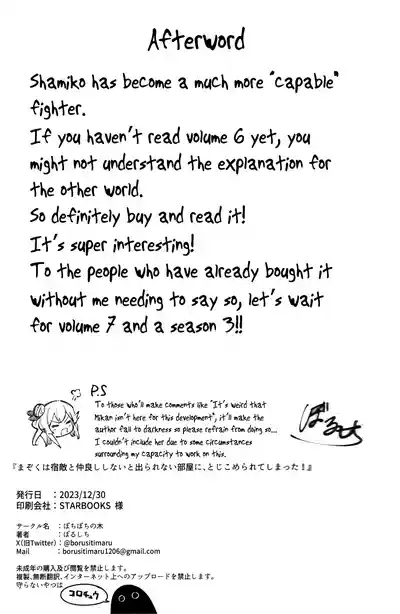 Afterword
Shamiko has become a much more "capable"
fighter.
If you haven't read volume 6 yet, you
might not understand the explanation for
the other world.
So definitely buy and read it!
It's super interesting!
To the people who have already bought it
without me needing to say so, let's wait
for volume 7 and a season 3!!
P.S
To those who'll make comments like "It's weird that
Mikan isn't here for this development", it'll make the
author fall to darkness so please refrain from doing so...
I couldn't include her due to some circumstances
surrounding my capacity to work on this.
ぼるしち
『まぞくは宿敵と仲良ししないと出られない部屋に、とじこめられてしまった!』
発行日 :2023/12/30
印刷会社:STARBOOKS 様
サークル名 :ぼちぼちの木
著者 :ぼるしち
X(旧Twitter):@borusitimaru
Mail :borusitimaru1206@gmail.com
未成年の購入及び閲覧を禁止します。
複製、無断翻訳、インターネット上へのアップロードを禁止します。
守らないやつは コロチュウ